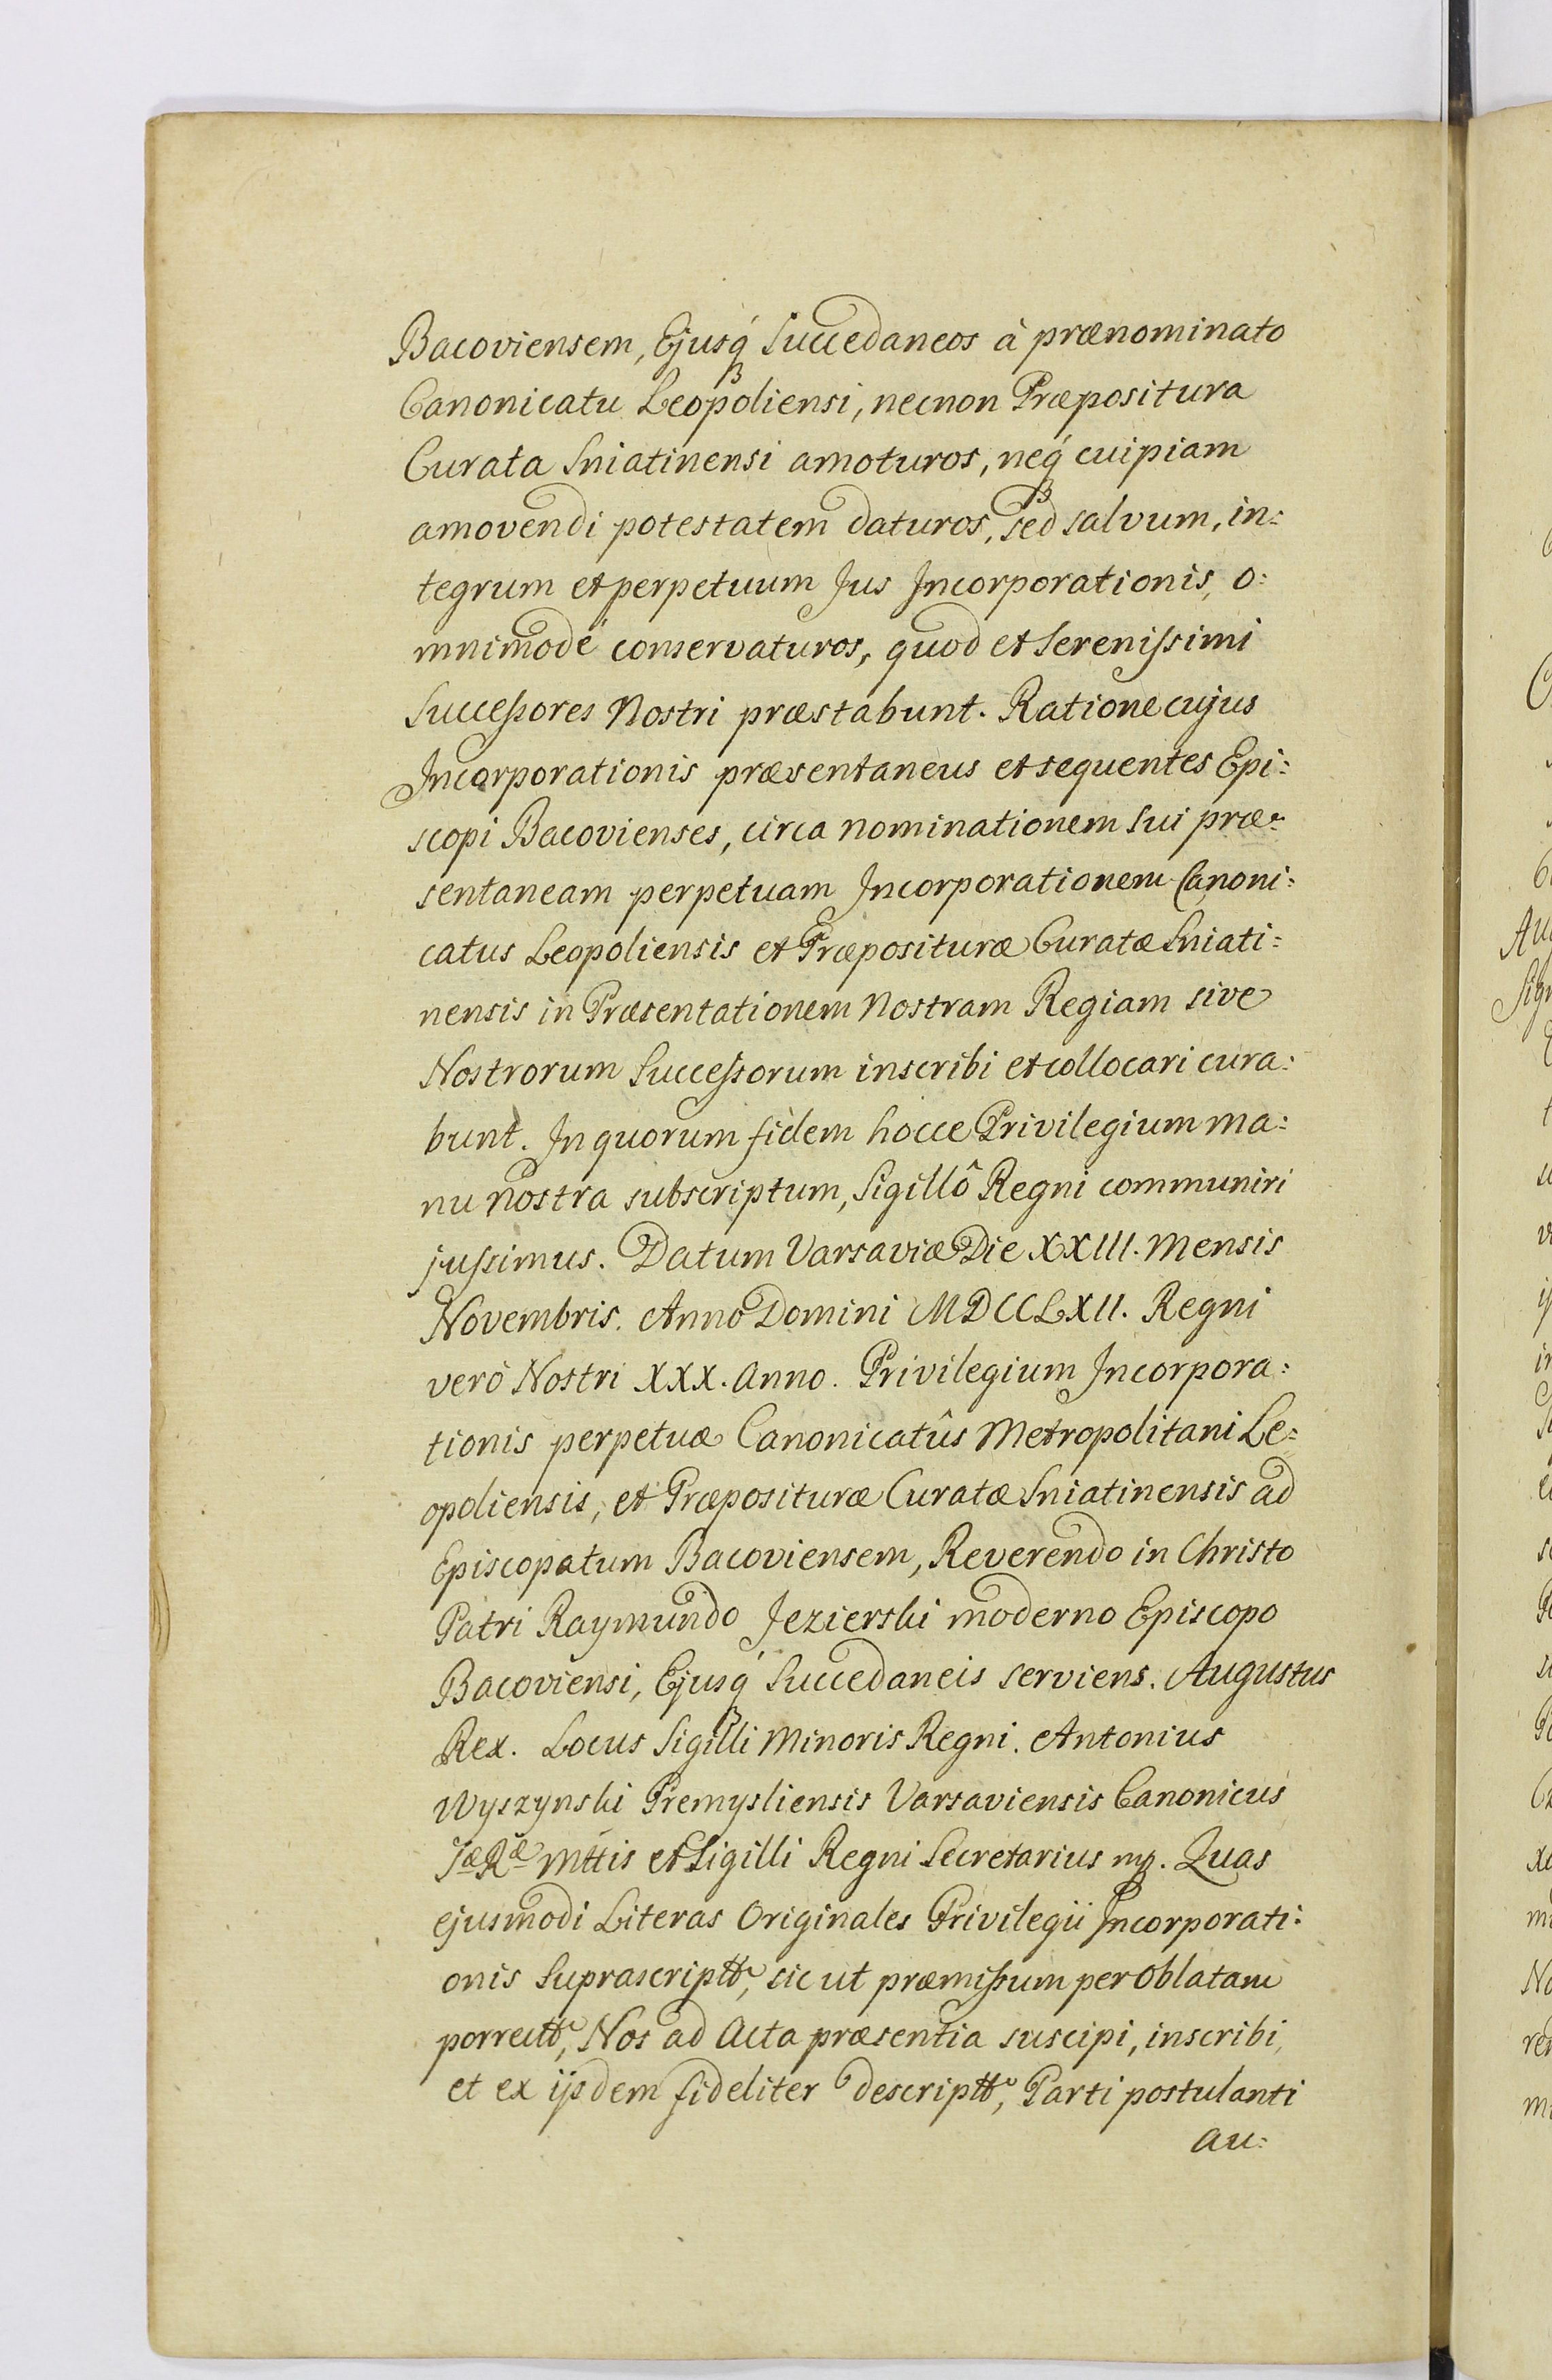 Bacoviensem, Ejusq́ Succedaneos à prænominato
Canonicatu Leopoliensi, necnon Præpositura
Curata Sniatinensi amoturos, neq́ cuipiam
amovendi potestatem daturos, sed salvum, in:
tegrum et perpetuum Jus Incorporationis, o:
mnimodé conservaturos, quod et Serenissimi
Successores Nostri præstabunt. Ratione cujus
Incorporationis præsentaneus et sequentes Epi:
scopi Bacovienses, circa nominationem sui præ:
sentaneam perpetuam Incorporationem Canoni:
catus Leopoliensis et Præposituræ Curatæ Sniati:
nensis in Præsentationem Nostram Regiam sive
Nostrorum Successorum inscribi et collocari cura:
bunt. In quorum fidem hocce Privilegium ma:
nu nostra subscriptum, Sigillô Regni communiri
jussimus. Datum Varsaviæ Die XXIII. Mensis
Novembris. Anno Domini MDCCLXII. Regni
verò Nostri XXX. Anno. Privilegium Incorpora:
tionis perpetuæ Canonicatûs Metropolitani Le:
opoliensis, et Præposituræ Curatæ Sniatinensis ad
Episcopatum Bacoviensem, Reverendo in Christo
Patri Raymundo Jezierski moderno Episcopo
Bacoviensi, Ejusq́ Succedaneis serviens. Augustus
Rex. Locus Sigilli Minoris Regni. Antonius
Wyszynski Premysliensis Varsaviensis Canonicus
Sæ Ræ Mttis et Sigilli Regni Secretarius mp. Quas
ejusmodi Literas Originales Privilegii Incorporati:
onis Suprascriptt, sic ut præmissum per Oblatam
porrectt, Nos ad Acta præsentia suscipi, inscribi,
et ex ijsdem fideliter descriptt, Parti postulanti
au: